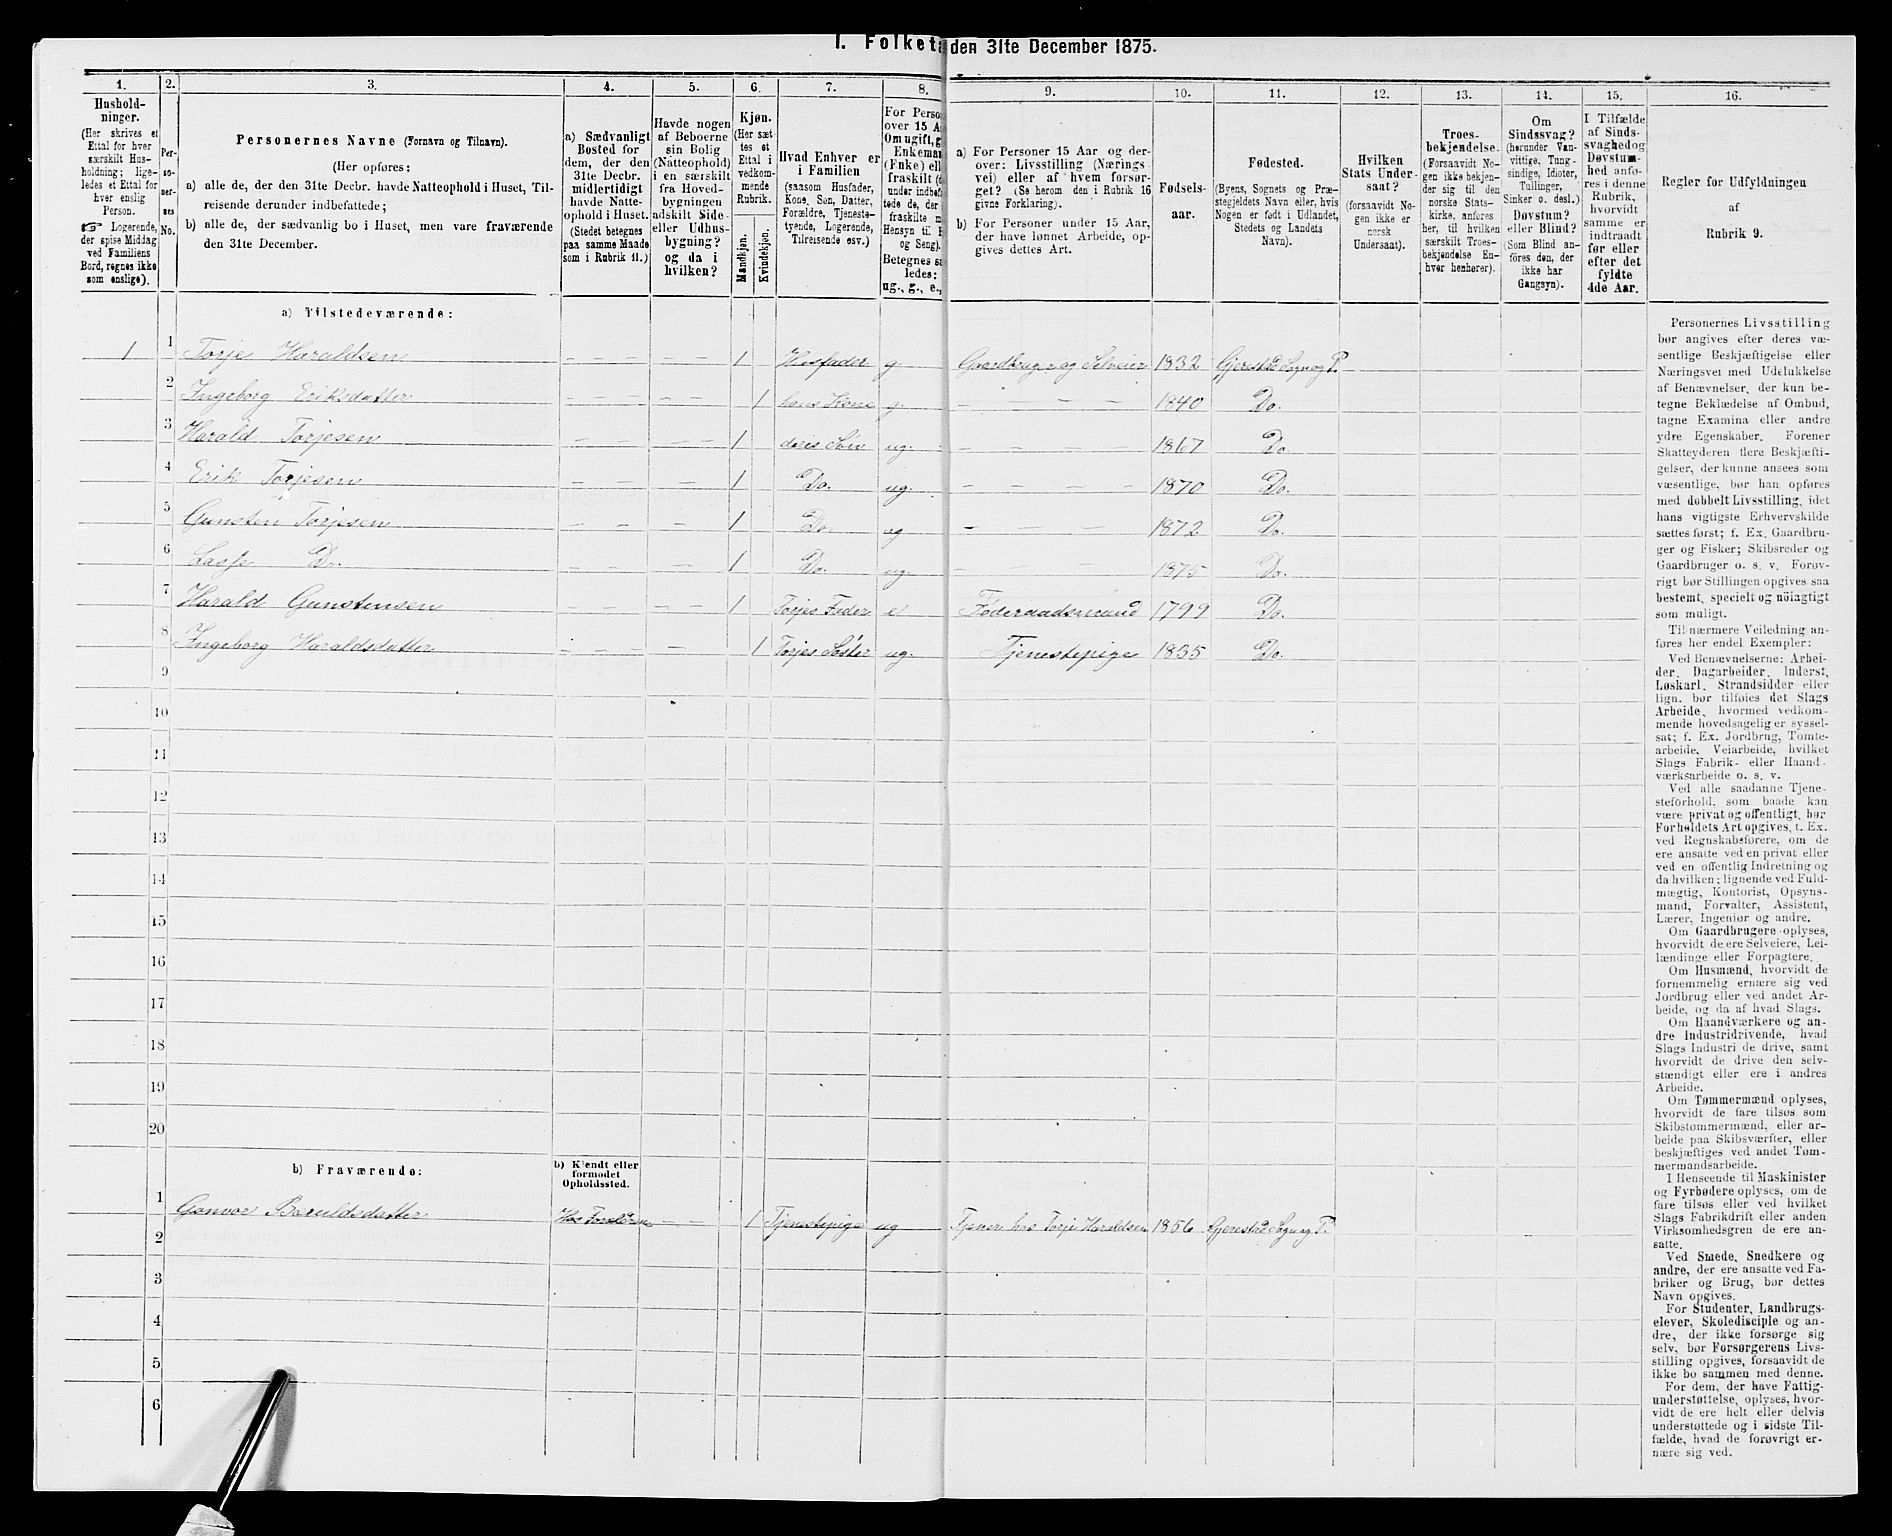 I. Folket den 31te December 1875.
1. 2. 3. 4. 5. 6. 7. 8. 9. 10. 11. 12. 13. 14. 15. 16.
Hushold-
ninger.
(Her skrives et
Ettal for hver
særskilt Hus-
holdning; lige-
ledes et Ettal for
hver enslig
Person.
☞ Logerende,
der spise Middag
ved Familiens
Bord, regnes ikke
som enslige).
Per-
so-
ner-
nes
No.
Personernes Navne (Fornavn og Tilnavn).
(Her opføres:
a) alle de, der den 31te Decbr. havde Natteophold i Huset, Til-
reisende derunder indbefattede;
b) alle de, der sædvanlig bo i Huset, men vare fraværende
den 31te December.
a) Sædvanligt
Bosted for
dem, der den
31te Decbr.
midlertidigt
havde Natte-
ophold i Huset.
(Stedet betegnes
paa samme Maade
som i Rubrik 11.)
Havde nogen
af Beboerne
sin Bolig
(Natteophold)
i en særskilt
fra Hoved-
bygningen
adskilt Side-
eller Udhus-
bygning?
og da i
hvilken?
Kjøn.
(Her sæt-
tes et
Ettal i
vedkom-
mende
Rubrik.
Mandkjøn.
Kvindekjøn.
Hvad Enhver er
i Familien
(saasom Husfader,
Kone, Søn, Datter,
Forældre, Tjeneste-
tyende, Logerende,
Tilreisende osv.)
For Perso
over 15 A
Om ugift, g
Enkeman
(Enke) ell
fraskilt (d
under indbef
tede de, der
fraskilte m
Hensyn til B
og Seng).
Betegnes sa
ledes:
ug., g., e.,
a) For Personer 15 Aar og der-
over: Livsstilling (Nærings
vei) eller af hvem forsør-
get? (Se herom den i Rubrik 16
givne Forklaring).
b) For Personer under 15 Aar,
der have lønnet Arbeide, op-
gives dettes Art.
Fødsels-
aar.
Fødested.
(Byens, Sognets og Præ-
stegjeldets Navn eller, hvis
Nogen er født i Udlandet,
Stedets og Landets
Navn).
Hvilken
Stats Under-
saat?
(forsaavidt No-
gen ikke er
norsk
Undersaat).
Troes-
bekjendelse.
(Forsaavidt No-
gen ikke bekjen-
der sig til den
norske Stats-
kirke, anføres
her, til hvilken
særskilt Troes-
bekjendelse En-
hver henhører).
Om
Sindssvag?
(herunder Van-
vittige, Tung-
sindige, Idioter,
Tullinger,
Sinker o. desl.)
Døvstum?
eller Blind?
(Som Blind an-
føres den, der
ikke har
Gangsyn).
I Tilfælde
af Sinds-
svaghed og
Døvstum-
hed anfø-
res i denne
Rubrik,
hvorvidt
samme er
indtraadt
før eller
efter det
fyldte
4de Aar.
Regler for Udfyldningen
af
Rubrik 9.
a) Tilstedeværende:
1 1 Torje Haraldsen – – – – – 1 Husfader g Gaardbruger og Selveier 1832 Gjerestad Sogn og P.
2 Ingeborg Eriksdatter – – – – – 1 hans Kone g – – – 1840 Do.
3 Harald Torjesen – – – – – 1 deris Søn ug. – – – 1867 Do
4 Erik Torjesen – – – – – 1 Do. ug. – – – 1870 Do.
5 Gunsten Torjesen – – – – – 1 Do. ug – – – 1872 Do.
6 Lasse Do. – – – – – 1 Do. ug. – – – 1875 Do.
7 Harald Gunstensen – – – – – 1 Torjes Fader e Føderaadsmand 1799 Do.
8 Ingeborg Haraldsdatter – – – – – 1 Torjes Søster ug. Tjenestepige 1835 Do.
9
10
11
12
13
14
15
16
17
18
19
20
b) Fraværende:
b) Kjendt eller
formodet
Opholdssted.
1 Gonvor Baruldsdatter Hos Foraldrene – – 1 Tjenestepige ug Tjener hos Torje Haraldsen 1856 Gjerestad Sogn og P.
2
3
4
5
6
Personernes Livsstilling
bør angives efter deres væ-
sentlige Beskjæftigelse eller
Næringsvei med Udelukkelse
af Benævnelser, der kun be-
tegne Beklædelse af Ombud,
tagne Examina eller andre
ydre Egenskaber. Forener
Skatteyderen flere Beskjæfti-
gelser, der kunne ansees som
væsentlige, bør han opføres
med dobbelt Livsstilling, idet
hans vigtigste Erhvervskilde
sættes først; f. Ex. Gaardbru-
ger og Fisker; Skibsreder og
Gaardbruger o. s. v. Forøv-
rigt bør Stillingen opgives saa
bestemt, specielt og nöiagtigt
som muligt.
Til nærmere Veiledning an-
føres her endel Exempler:
Ved Benævnelserne: Arbei-
der, Dagarbeider, Inderst,
Løskarl, Strandsidder eller
lign. bør tilføies det Slags
Arbeide, hvormed vedkom-
mende hovedsagelig er syssel-
sat; f. Ex. Jordbrug, Tomte-
arbeide, Veiarbeide, hvilket
Slags Fabrik- eller Haand-
værksarbeide o. s. v.
Ved alle saadanne Tjene-
steforhold, som baade kan
være privat og offentligt, bør
Forholdets Art opgives, t. Ex.
ved Regnskabsførere, om de
ere ansatte ved en privat eller
ved en offentlig Indretning og
da hvilken; lignende ved Fuld-
mægtig, Kontorist, Opsyns-
mand, Forvalter, Assistent,
Lærer, Ingeniør og andre.
Om Gaardbrugere oplyses,
hvorvidt de ere Selveiere, Lei-
lændinge eller Forpagtere.
Om Husmænd, hvorvidt de
fornemmelig ernære sig ved
Jordbrug eller ved andet Ar-
beide, og da af hvad Slags.
Om Haandværkere og an-
dre Industridrivende, hvad
Slags Industri de drive, samt
hvorvidt de drive den selv-
stændigt eller ere i andres
Arbeide.
Om Tømmermænd oplyses,
hvorvidt de fare tilsøs som
Skibstømmermænd, eller ar-
beide paa Skibsværfter, eller
beskjæftiges ved andet Tøm-
mermandsarbeide.
I Henseende til Maskinister
og Fyrbødere oplyses, om de
fare tilsøs eller ved hvilket
Slags Fabrikdrift eller anden
Virksomhedsgren de ere an-
satte.
Ved Smede, Snedkere og
andre, der ere ansatte ved Fa-
briker og Brug, bør dettes
Navn opgives.
For Studenter, Landbrugs-
elever, Skoledisciple og an-
dre, der ikke forsørge sig
selv, bør Forsørgerens Livs-
stilling opgives, forsaavidt de
ikke bo sammen med denne.
For dem, der have Fattig-
understøttelse, oplyses, hvor-
vidt de ere helt eller delvis
understøttede og i sidste Til-
fælde, hvad de forøvrigt er-
nære sig ved.